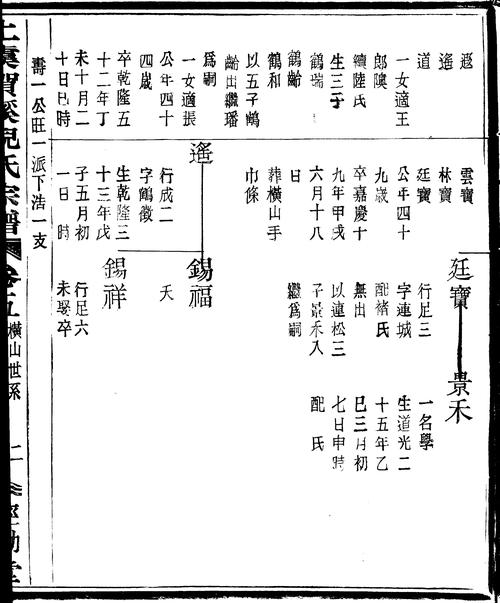 遐
遙
道
一女適王
郎隩
續陸氏
生三子
鶴瑞
鶴齡
鶴和
以五子鶴
齡出繼璠
爲嗣
一女適振
公年四十
四歲
卒乾隆五
十二年丁
未十月二
十日巳時
雲寶
林寶
廷寶
公年四十
九歲
卒嘉慶十
九年甲戌
六月十八
日
葬橫山手
巾條
遙
行成二
字鶴徵
生乾隆三
十三年戊
子五月初
一日 時
廷寶
行足三
字連城
配褚氏
無出
以連松三
子景禾入
繼爲嗣
錫福
夭
錫祥
行足六
未娶卒
景禾
一名學
生道光二
十五年乙
巳三月初
七日申時
配 氏
壽一公旺一派下浩一支
上虞賀溪倪氏宗譜
橫山世系
二